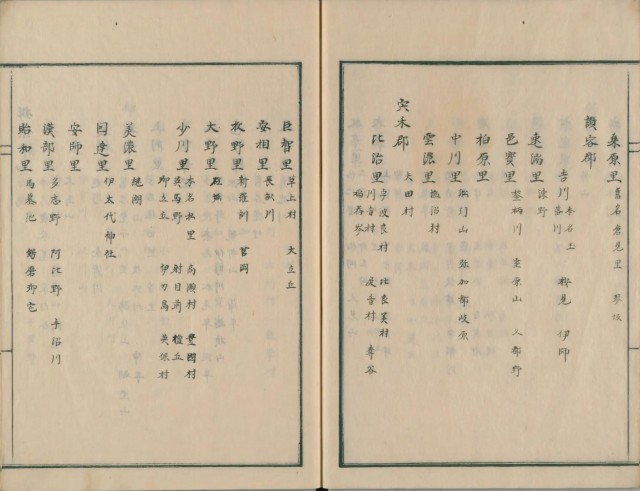 桑原里 舊名倉見里 琴坂
讃容郡
吉川 本名玉落川 桉見 伊師
速湍里 凍野
邑寶里 鍫柄川 室原山 久都野
柏原里
中川里 船引山 弥加都岐原
雲濃里 塩沼村
宍禾郡 大田村
比治里 宇波良村 比良美村
川音村 庭音村 奪谷
稲舂岑
巨智里 草上村 大立丘
安相里 長畝川
枚野里 新羅訓 筥岡
大野里 砥堀
少川里 本名私里 高瀬村 豊國村
英馬野 射目前 檀丘
御立丘 伊刀嶋 英保村
美濃里 継潮
因達里 伊太代神社
安師里
漢部里 多志野 阿比野 手沼川
貽和里 馬墓池 餝磨御宅